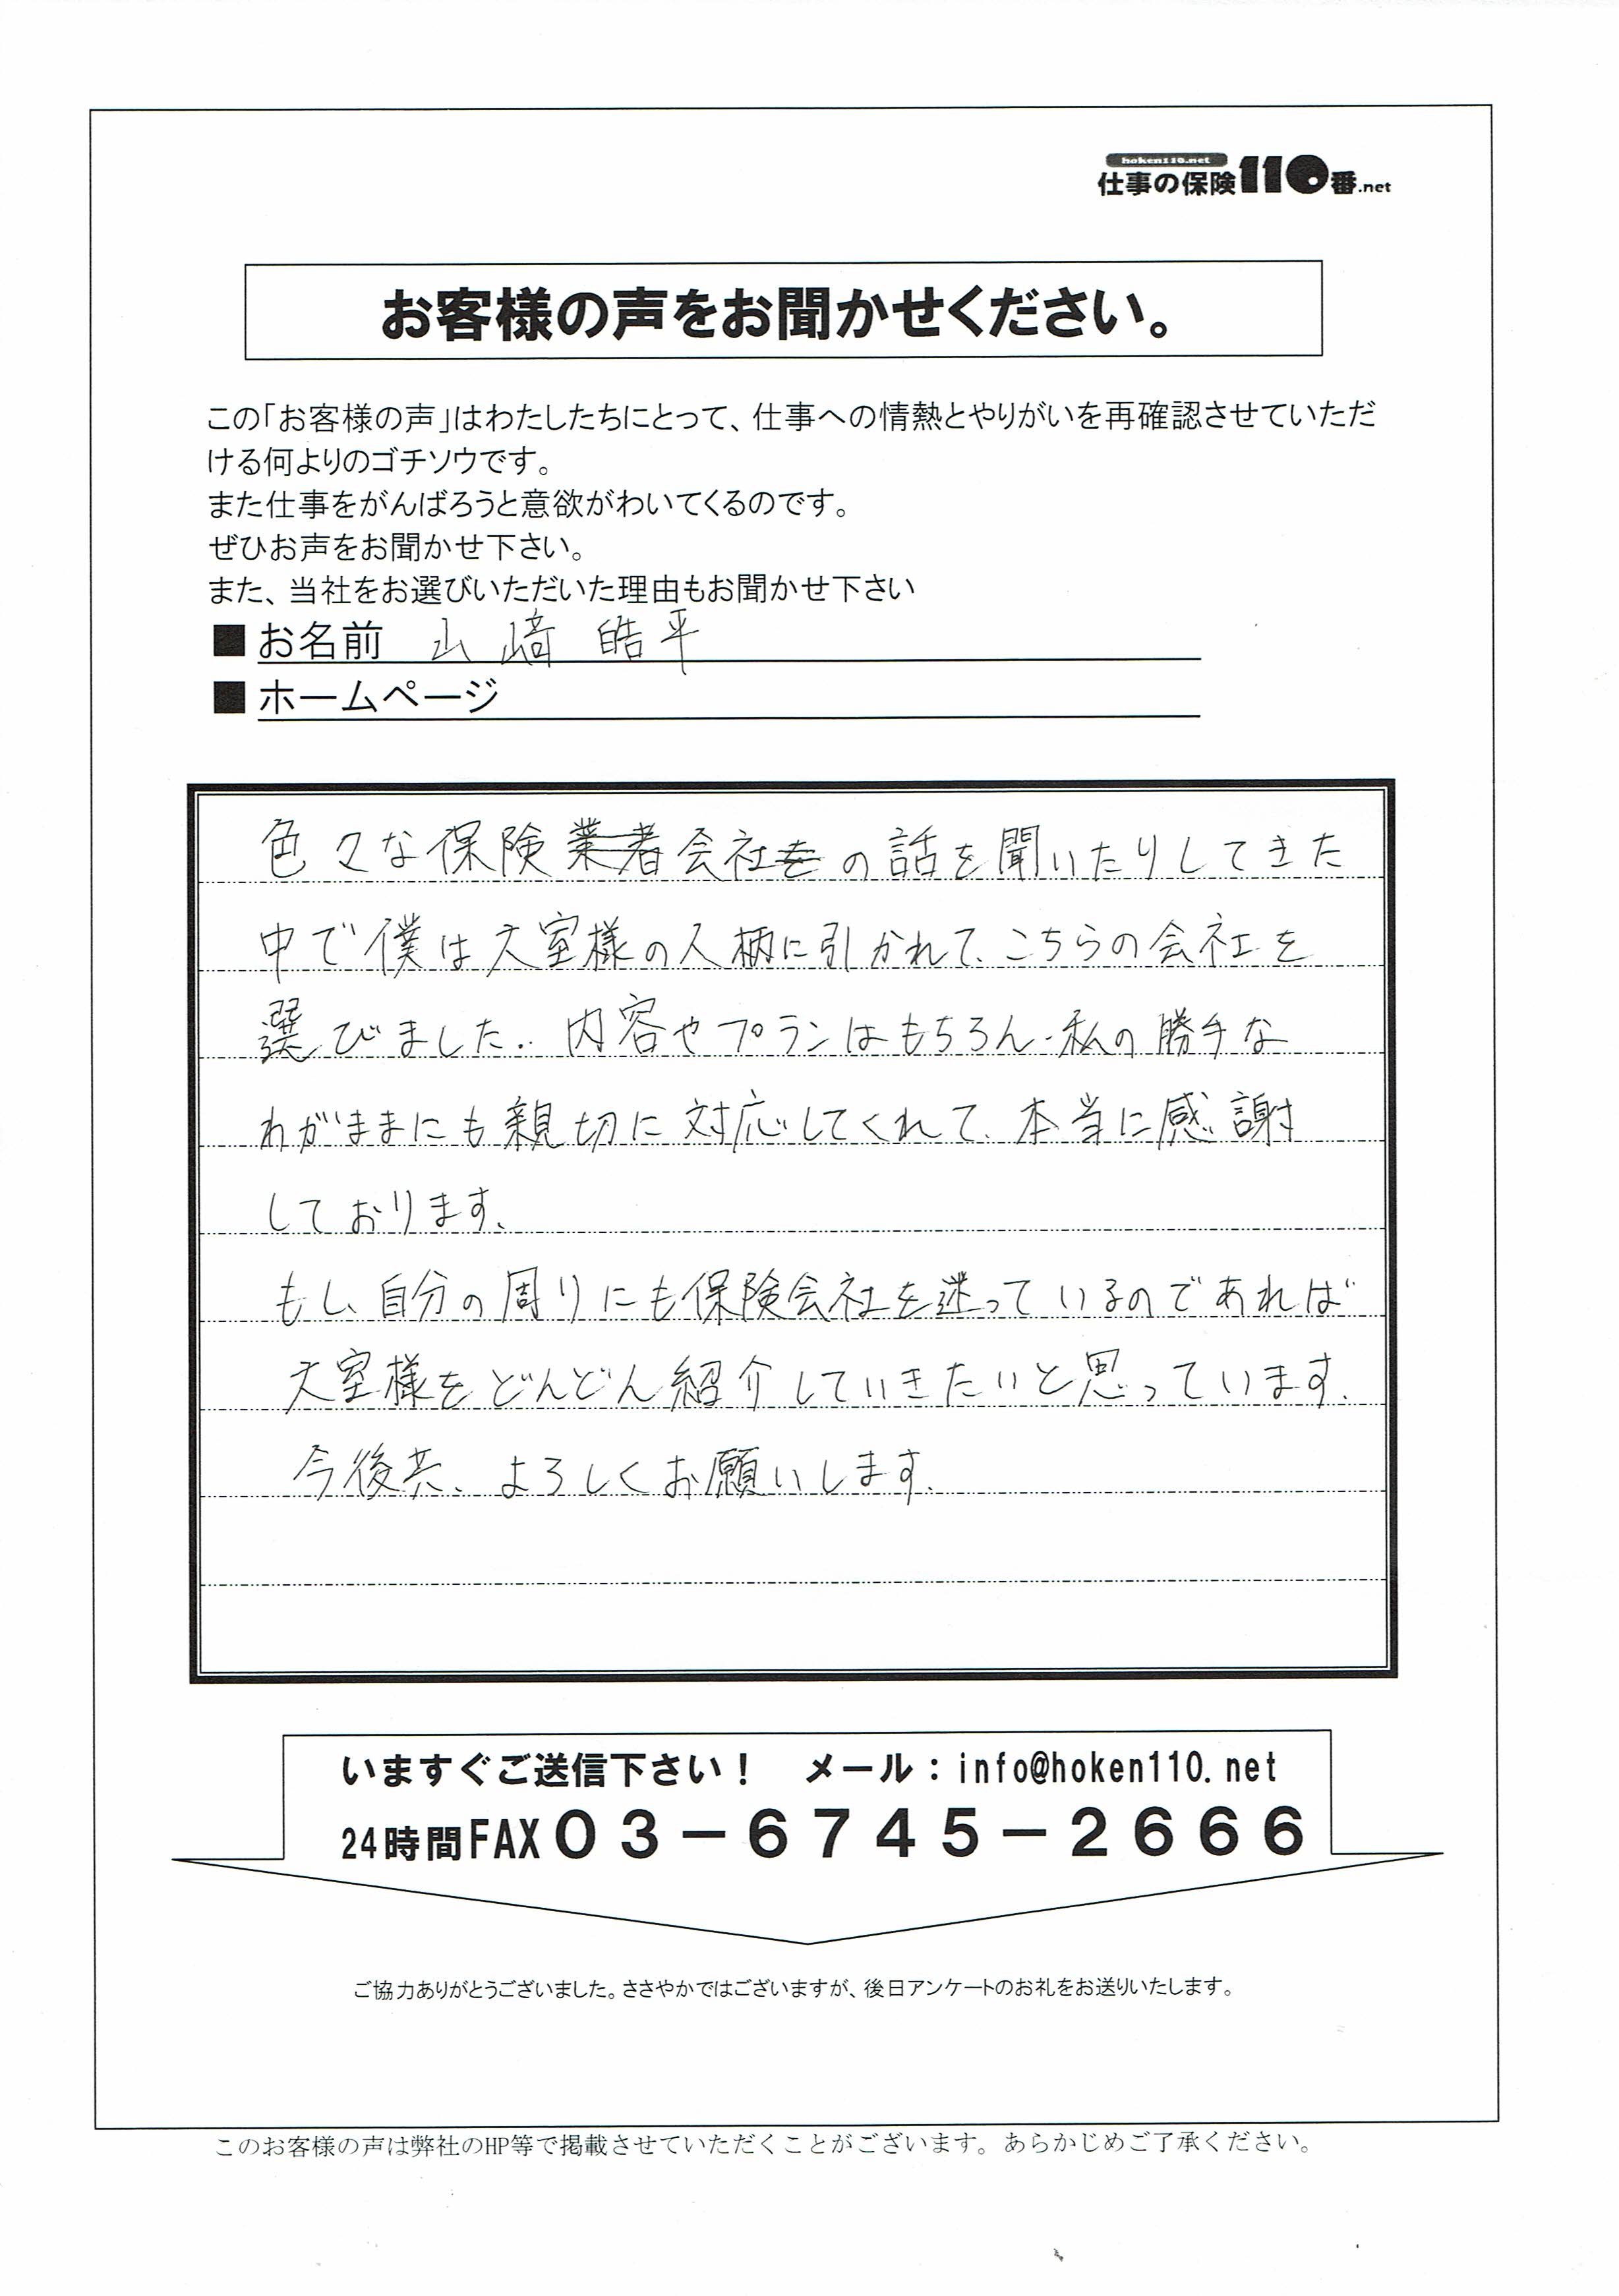 hoken110.net
仕事の保険110番.net
お客様の声をお聞かせください。
この「お客様の声」はわたしたちにとって、仕事への情熱とやりがいを再確認させていただ
ける何よりのゴチソウです。
また仕事をがんばろうと意欲がわいてくるのです。
ぜひお声をお聞かせ下さい。
また、当社をお選びいただいた理由もお聞かせ下さい
■お名前 山﨑 皓平
■ホームページ
色々な保険業者会社をの話を聞いたりしてきた
中で僕は大室様の人柄に引かれて、こちらの会社を
選びました。内容やプランはもちろん、私の勝手な
わがままにも親切に対応してくれて、本当に感謝
しております。
もし、自分の周りにも保険会社を迷っているのであれば
大室様をどんどん紹介していきたいと思っています。
今後共、よろしくお願いします。
いますぐご送信下さい！ メール：info@hoken110.net
24時間FAX０３－６７４５－２６６６
ご協力ありがとうございました。ささやかではございますが、後日アンケートのお礼をお送りいたします。
このお客様の声は弊社のHP等で掲載させていただくことがございます。あらかじめご了承ください。